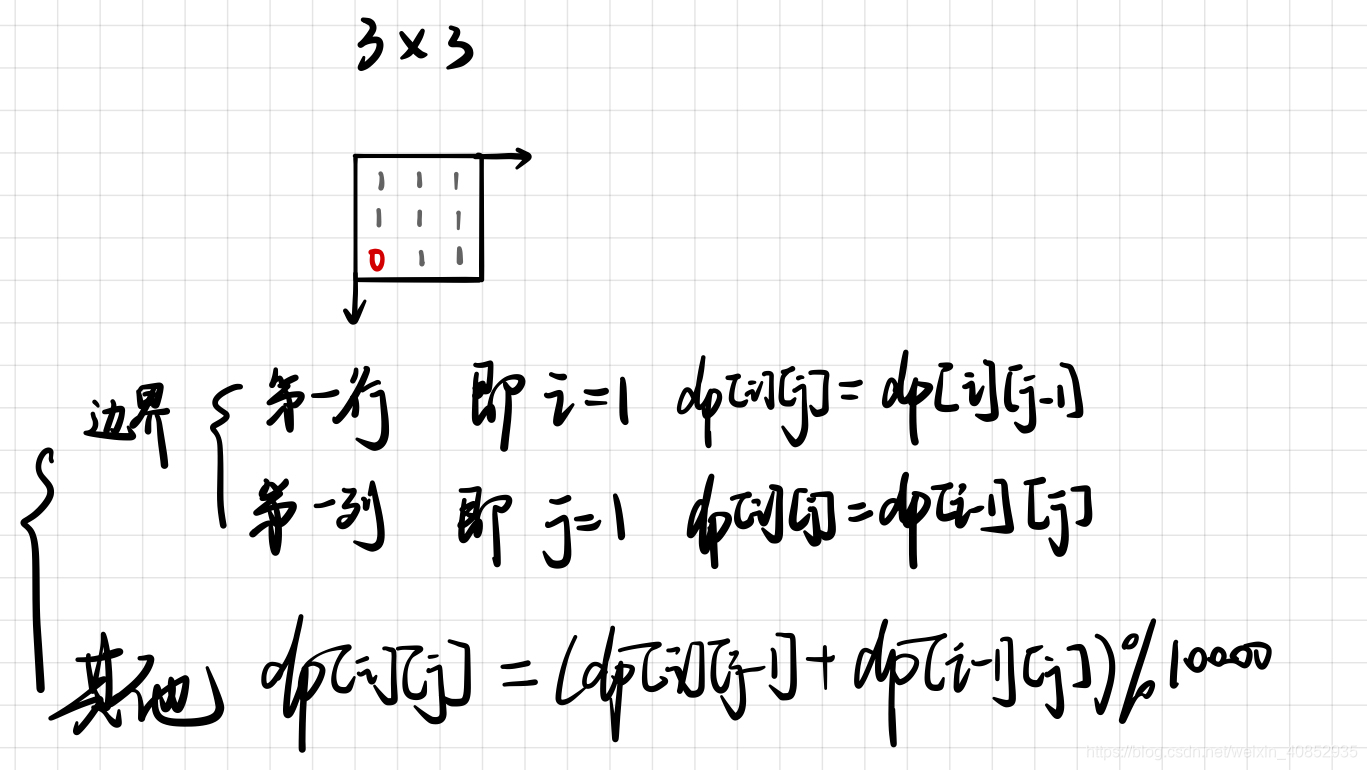 3 × 3
1 1 1
1 1 1
0 1 1
边界 第一行 即 i=1 dp[i][j] = dp[i][j-1]
第一列 即 j=1 dp[i][j] = dp[i-1][j]
其他 dp[i][j] = (dp[i][j-1] + dp[i-1][j]) % 10000
https://blog.csdn.net/weixin_40852935